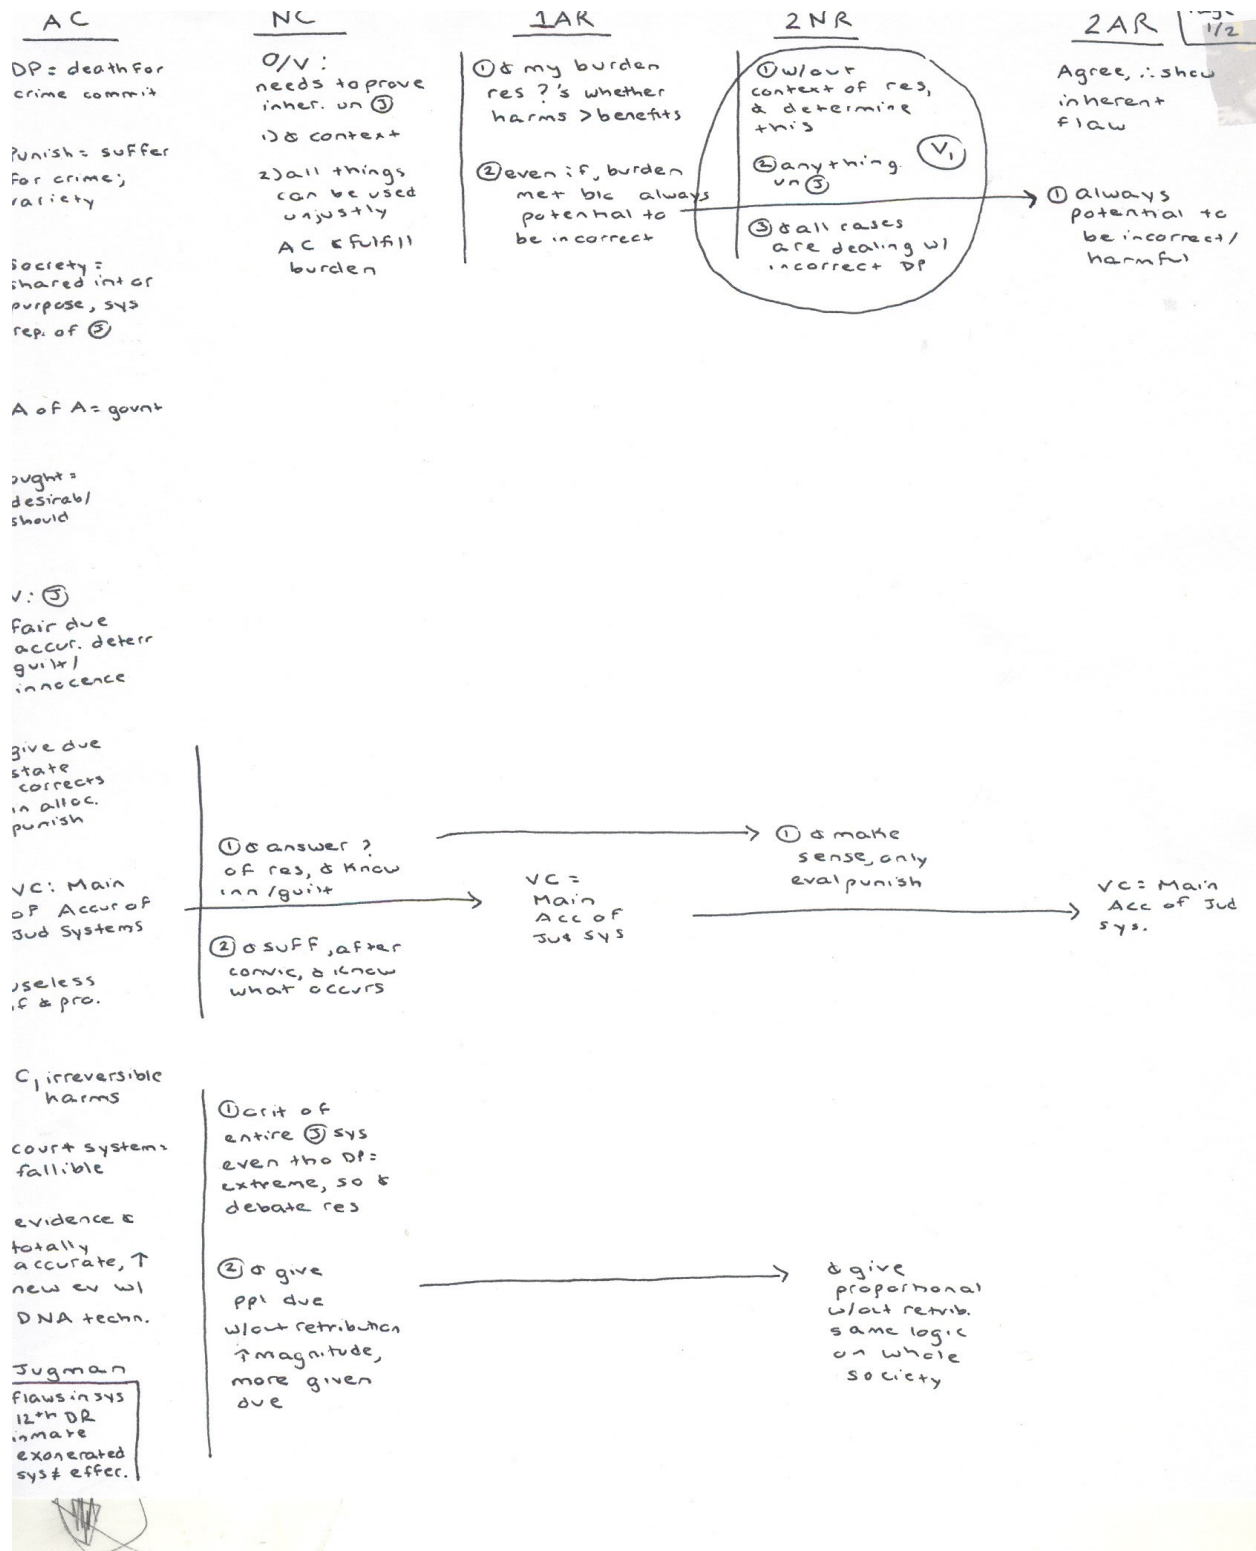 AC
DP = death for
crime commit
Punish = suffer
for crime;
variety
Society =
shared int or
purpose, sys
rep. of Ⓙ
A of A = govnt
ought =
desirab/
should
V: Ⓙ
fair due
accur. deterr
guilt/
innocence
give due
state
corrects
in alloc.
punish
VC: Main
of Accur of
Jud Systems
useless
if & pro.
C1 irreversible
harms
court system =
fallible
evidence &
totally
accurate, ↑
new ev w/
DNA techn.
Jugman
flaws in sys
12th DR
inmate
exonerated
sys ≠ effer.
NC
O/V:
needs to prove
inher. un Ⓙ
1) & context
2) all things
can be used
unjustly
AC & fulfill
burden
① & answer ?
of res, & know
inn/guilt
② & suff, after
convic, & know
what occurs
① crit of
entire Ⓙ sys
even tho DP =
extreme, so &
debate res
② & give
ppl due
w/out retribution
↑ magnitude,
more given
due
1AR
① & my burden
res ?'s whether
harms > benefits
② even if, burden
met b/c always
potential to
be incorrect
VC =
Main
Acc of
Jud Sys
2NR
① w/out
context of res,
& determine
this
② anything
un Ⓙ
V1
③ & all cases
are dealing w/
incorrect DP
① & make
sense, only
eval punish
& give
proportional
w/out retrib.
same logic
on whole
society
2AR
Page
1/2
Agree, ∴ show
inherent
flaw
① always
potential to
be incorrect/
harmful
VC = Main
Acc of Jud
sys.